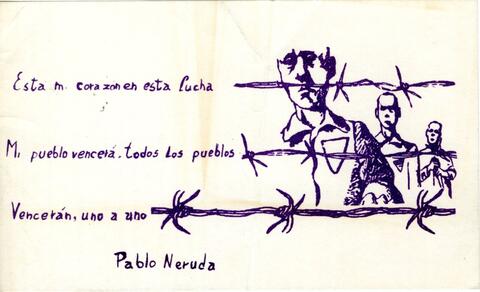 Esta mi corazon en esta lucha
Mi pueblo vencerá. todos los pueblos
Vencerán, uno a uno
Pablo Neruda